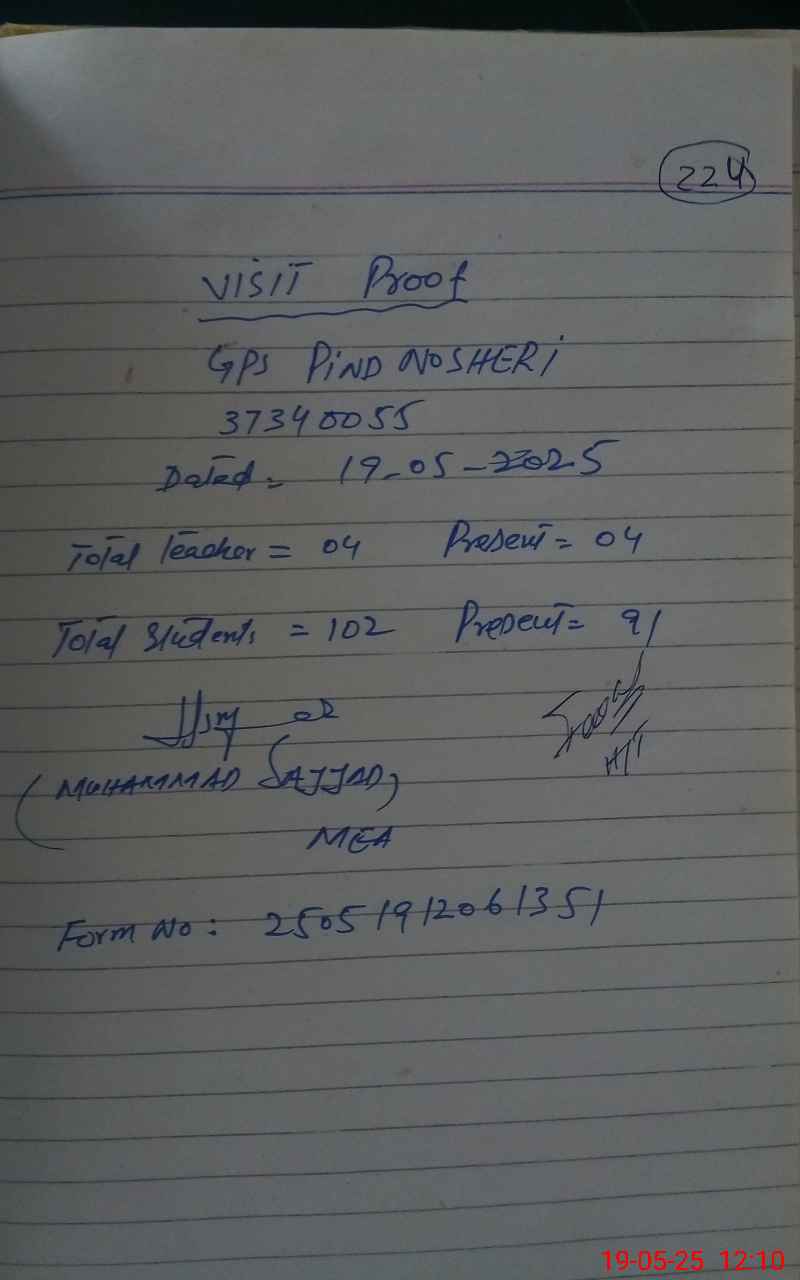 224
VISIT Proof
GPS PIND NOSHERI
37340055
Dated = 19-05-2025
Total Teacher = 04 Present = 04
Total Students = 102 Present = 91
(MUHAMMAD SAJJAD)
H/T
MEA
Form No: 25051912061351
19-05-25 12:10